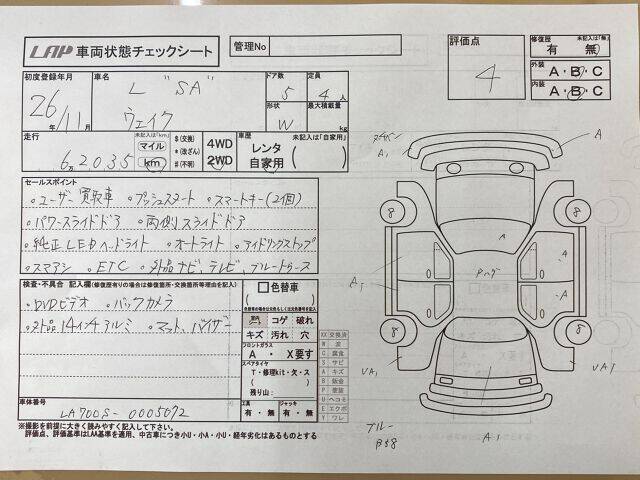 LAP 車両状態チェックシート
管理No
評価点
4
修復歴
未記入は「無」
有 無
外装
A・B・C
内装
A・B・C
初度登録年月
26年 11月
車名
L "SA"
ウェイク
ドア数
5
定員
4人
形状
W
最大積載量
kg
走行
未記入は「km」
62035
万
マイル
km
$(交換)
*(改ざん)
#(不明)
4WD
2WD
車歴
未記入は「自家用」
レンタ
自家用
( )
セールスポイント
・ユーザー買取車 ・プッシュスタート ・スマートキー(2個)
・パワースライドドア ・両側スライドドア
・純正LEDヘッドライト ・オートライト ・アイドリングストップ
・スマアシ ・ETC ・外品ナビ、テレビ、ブルートゥース
検査・不具合 記入欄(修復歴有りの場合は修復箇所・交換箇所等理由を記入)
・DVDビデオ ・バックカメラ
・外品14インチアルミ ・マット、バイザー
色替車
( )
コゲ 破れ
キズ 汚れ 穴
フロントガラス
A ・ X要す
スペアタイヤ
T・修理kit・欠・ス
残り山:
工具
有・無
ジャッキ
有・無
XX 交換済
W 波
C 腐食
S サビ
A キズ
B 鈑金
P 塗装
U ヘコミ
E エクボ
Y ワレ
車体番号
LA700S-0005072
※撮影を前提に大きく読みやすく記入して下さい。
評価点、評価基準はLAA基準を適用、中古車につき小U・小A・小U・経年劣化はあるものとする
A1
A
8
8
A
A
A1
A
8
8
UA1
UA1
A1
ブルー
B58